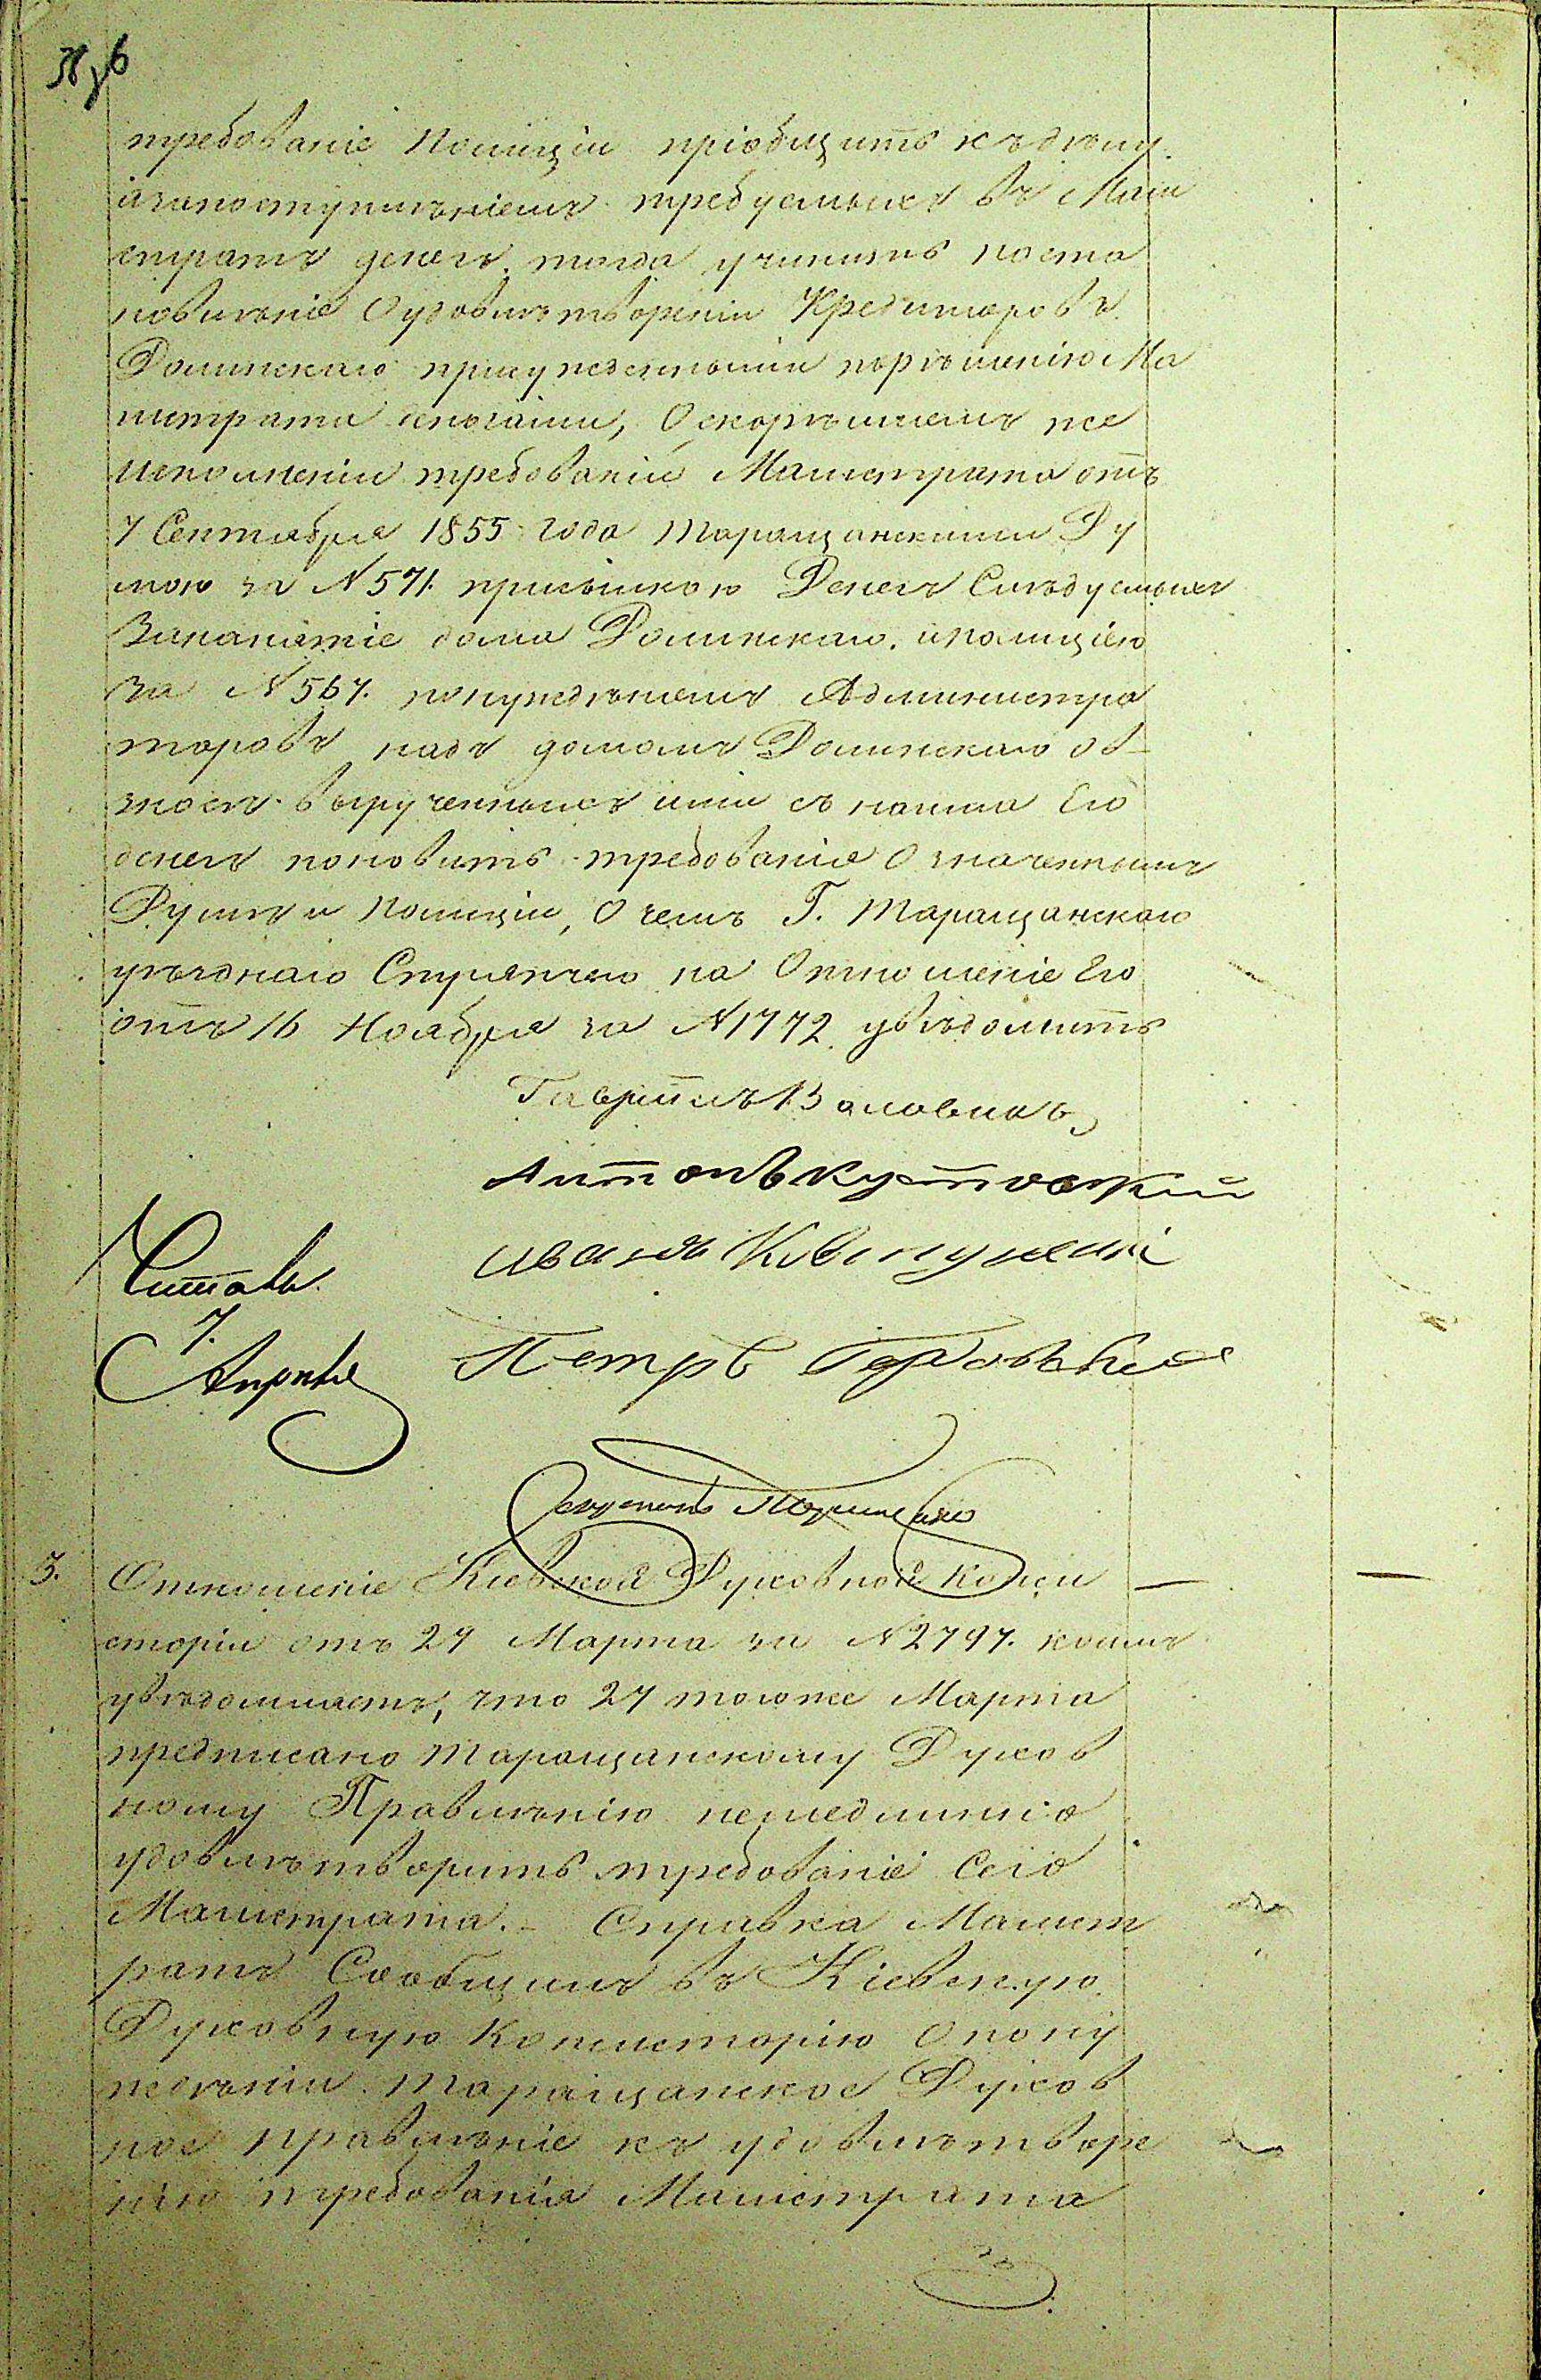 требованіе Полиціи пріобщить къ дѣлу
изапоступленіемъ требуемыхъ въ Маги
стратъ денегъ, тогда учинить поста
новленіе Оудовлѣтвореніи Кредиторовъ
Долинскаго присужденными порѣшенію Ма
гистрата деньгами, Оскорѣйшемъ же
исполненіи требованій Магистрата отъ
7 Сентября 1855 года Таращанскими Ду
мою за N 571. присылкою Денегъ Слѣдуемыхъ
Зананятіе дома Долинскаго. иполиціею
за N 567. понужденіемъ Администра
торовъ надъ домомъ Долинскаго объ
взносѣ вырученныхъ ими съ найма Его
денегъ поновить требованія Означеннымъ
Думѣ и Полиціи, О чемъ Г. Таращанскаго
уѣзднаго Стряпчего на Отношеніе Его
отъ 16 Ноября за N 1772. увѣдомить
Гавріилъ
Антонъ
Иванъ
Читалъ
7.
Апрѣля
Петръ
Секретарь
3. Отношеніе Кіевской Духовной Конси
сторіи отъ 29 Марта за N 2797. коимъ
увѣдомляетъ, что 27 тогоже Марта
предписано Таращанскому Духов
ному Правленію немедленно
удовлѣтворить требованіе Сего
Магистрата. – Справка Магист
ратъ Сообщилъ въ Кіевскую
Духовную Консисторію Опону
жденіи Таращанское Духов
ное правленіе къ удовлѣтворе
нію требованія Магистрата